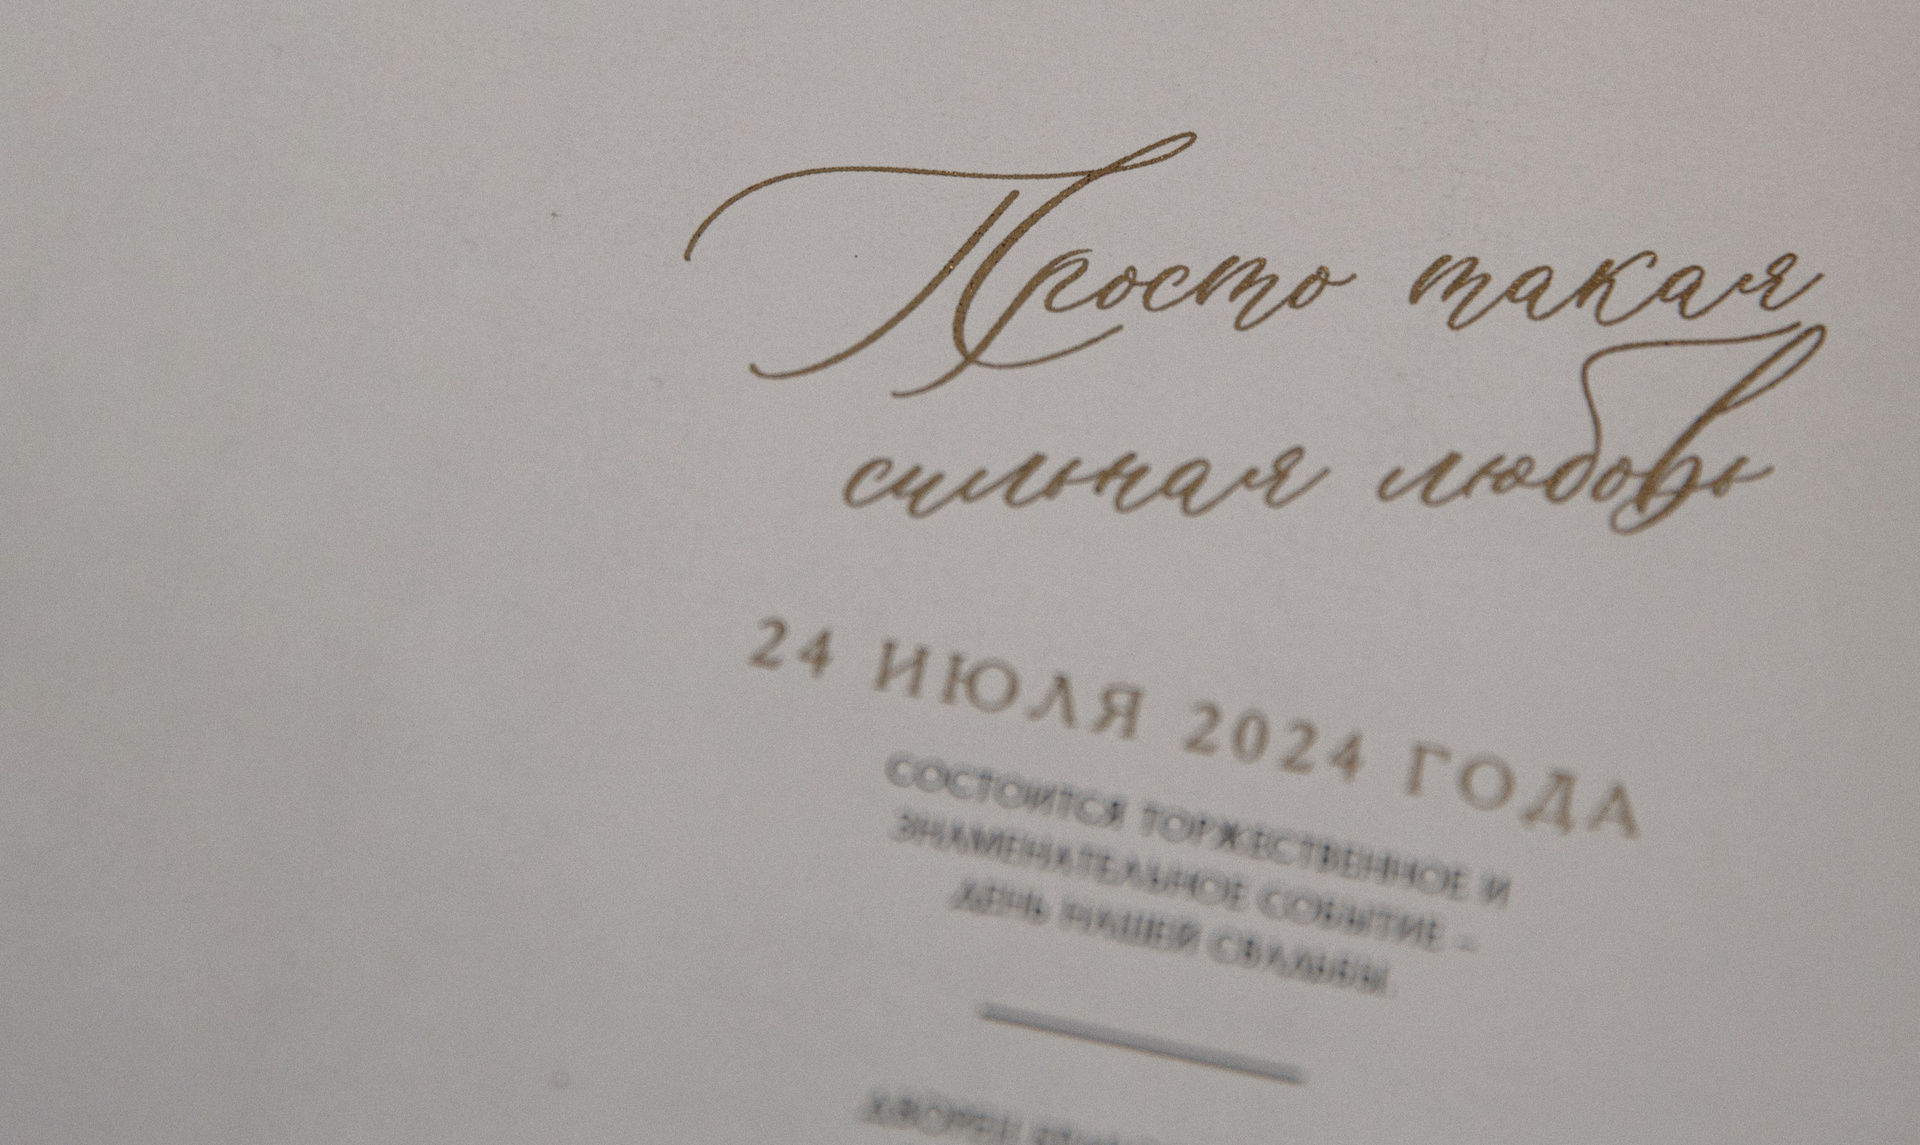 Просто такая
сильная любовь
24 ИЮЛЯ 2024 ГОДА
СОСТОИТСЯ ТОРЖЕСТВЕННОЕ И
ЗНАМЕНАТЕЛЬНОЕ СОБЫТИЕ –
ДЕНЬ НАШЕЙ СВАДЬБЫ